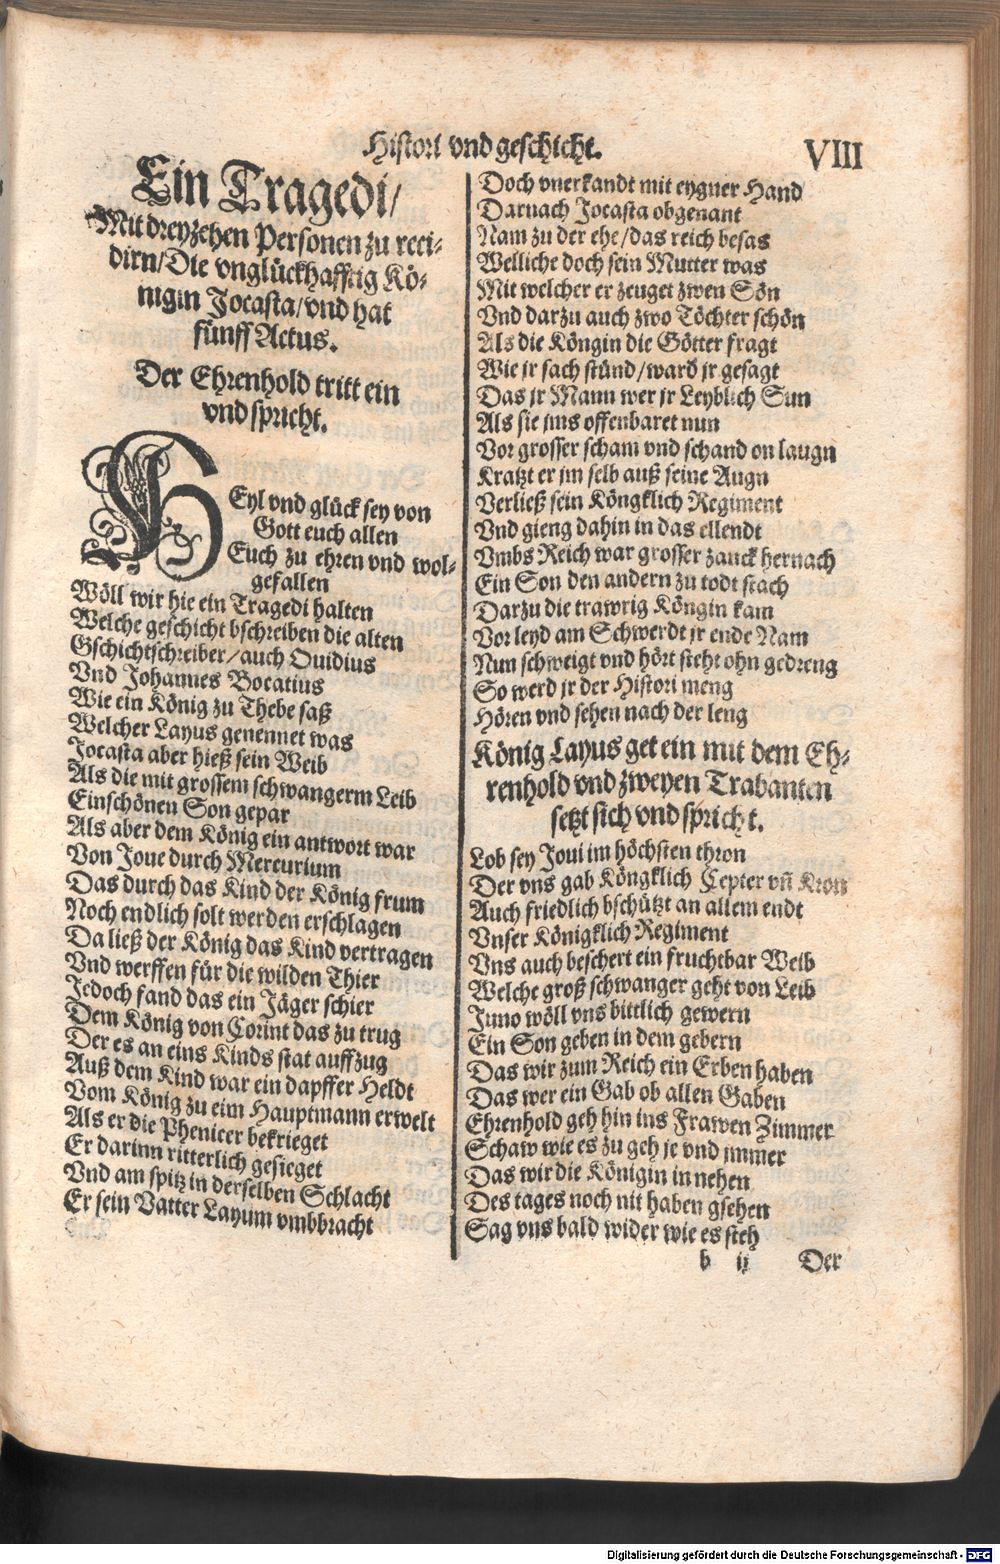 Histori vnd geschicht.
VIII
Ein Tragedi/
Mit dreyzehen Personen zu reci-
dirn/Die vnglückhafftig Kö-
nigin Jocasta/vnd hat
fünff Actus.
Der Ehrenhold tritt ein
vnd spricht.
HEyl vnd glück sey von
Gott euch allen
Euch zu ehren vnd wol-
gefallen
Wöll wir hie ein Tragedi halten
Welche geschicht bschreiben die alten
Gschichtschreiber/auch Ouidius
Vnd Johannes Bocatius
Wie ein König zu Thebe saß
Welcher Layus genennet was
Jocasta aber hieß sein Weib
Als die mit grossem schwangerm Leib
Einschönen Son gepar
Als aber dem König ein antwort war
Von Joue durch Mercurium
Das durch das Kind der König frum
Noch endlich solt werden erschlagen
Da ließ der König das Kind vertragen
Vnd werffen für die wilden Thier
Jedoch fand das ein Jäger schier
Dem König von Corint das zu trug
Der es an eins Kinds stat auffzug
Auß dem Kind war ein dapffer Heldt
Vom König zu eim Hauptmann erwelt
Als er die Phenicer bekrieget
Er darinn ritterlich gesieget
Vnd am spitz in derselben Schlacht
Er sein Vatter Layum vmbbracht
Doch vnerkandt mit eygner Hand
Darnach Jocasta obgenant
Nam zu der ehe/das reich besas
Welliche doch sein Mutter was
Mit welcher er zeuget zwen Sön
Vnd darzu auch zwo Töchter schön
Als die Köngin die Götter fragt
Wie jr sach stünd/ward jr gesagt
Das jr Mann wer jr Leyblich Sun
Als sie jms offenbaret nun
Vor grosser scham vnd schand on laugn
Kratzt er jm selb auß seine Augn
Verließ sein Köngklich Regiment
Vnd gieng dahin in das ellendt
Vmbs Reich war grosser zanck hernach
Ein Son den andern zu todt stach
Darzu die trawrig Köngin kam
Vor leyd am Schwerdt jr ende Nam
Nun schweigt vnd hört steht ohn gedreng
So werd jr der Histori meng
Hören vnd sehen nach der leng
König Layus get ein mit dem Eh-
renhold vnd zweyen Trabanten
setzt sich vnd spricht.
Lob sey Joui im höchsten thron
Der vns gab Köngklich Cepter vñ Kron
Auch friedlich bschützt an allem endt
Vnser Königklich Regiment
Vns auch beschert ein fruchtbar Weib
Welche groß schwanger geht von Leib
Juno wöll vns bittlich gewern
Ein Son geben in dem gebern
Das wir zum Reich ein Erben haben
Das wer ein Gab ob allen Gaben
Ehrenhold geh hin ins Frawen Zimmer
Schaw wie es zu geh je vnd jmmer
Das wir die Königin in nehen
Des tages noch nit haben gsehen
Sag vns bald wider wie es steh
b ij Der
Digitalisierung gefördert durch die Deutsche Forschungsgemeinschaft - DFG